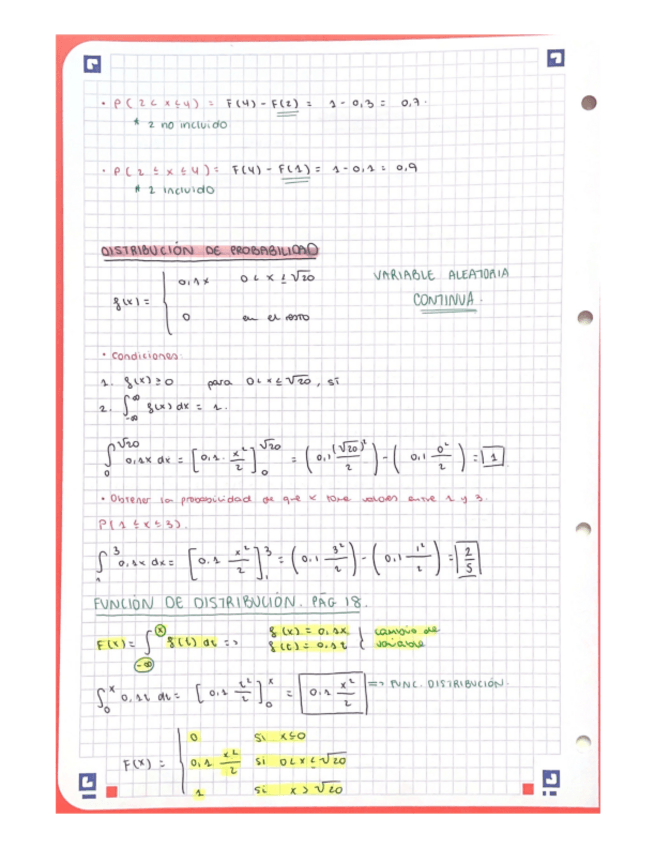 · P(2 < x ≤ 4) = F(4) - F(2) = 1 - 0,3 = 0,7.
* 2 no incluido
· P(2 ≤ x ≤ 4) = F(4) - F(1) = 1 - 0,1 = 0,9
* 2 incluido
DISTRIBUCIÓN DE PROBABILIDAD
f(x) = { 0,1x 0 < x ≤ √20
0 en el resto
VARIABLE ALEATORIA
CONTINUA.
· Condiciones:
1. f(x) ≥ 0 para 0 < x ≤ √20, sí
2. ∫_{-∞}^{∞} f(x) dx = 1.
∫_0^{√20} 0,1x dx = [0,1 · x²/2]_0^{√20} = (0,1 (√20)²/2) - (0,1 0²/2) = 1
· Obtener la probabilidad de que x tome valores entre 1 y 3.
P(1 ≤ x ≤ 3).
∫_1^3 0,1x dx = [0,1 x²/2]_1^3 = (0,1 3²/2) - (0,1 1²/2) = 2/5
FUNCIÓN DE DISTRIBUCIÓN. PÁG 18.
F(x) = ∫_{-∞}^{x} f(t) dt => f(x) = 0,1x
f(t) = 0,1t } cambio de
variable
∫_0^x 0,1t dt = [0,1 t²/2]_0^x = 0,1 x²/2 => FUNC. DISTRIBUCIÓN.
F(x) = { 0 si x≤0
0,1 x²/2 si 0 < x ≤ √20
1 si x > √20